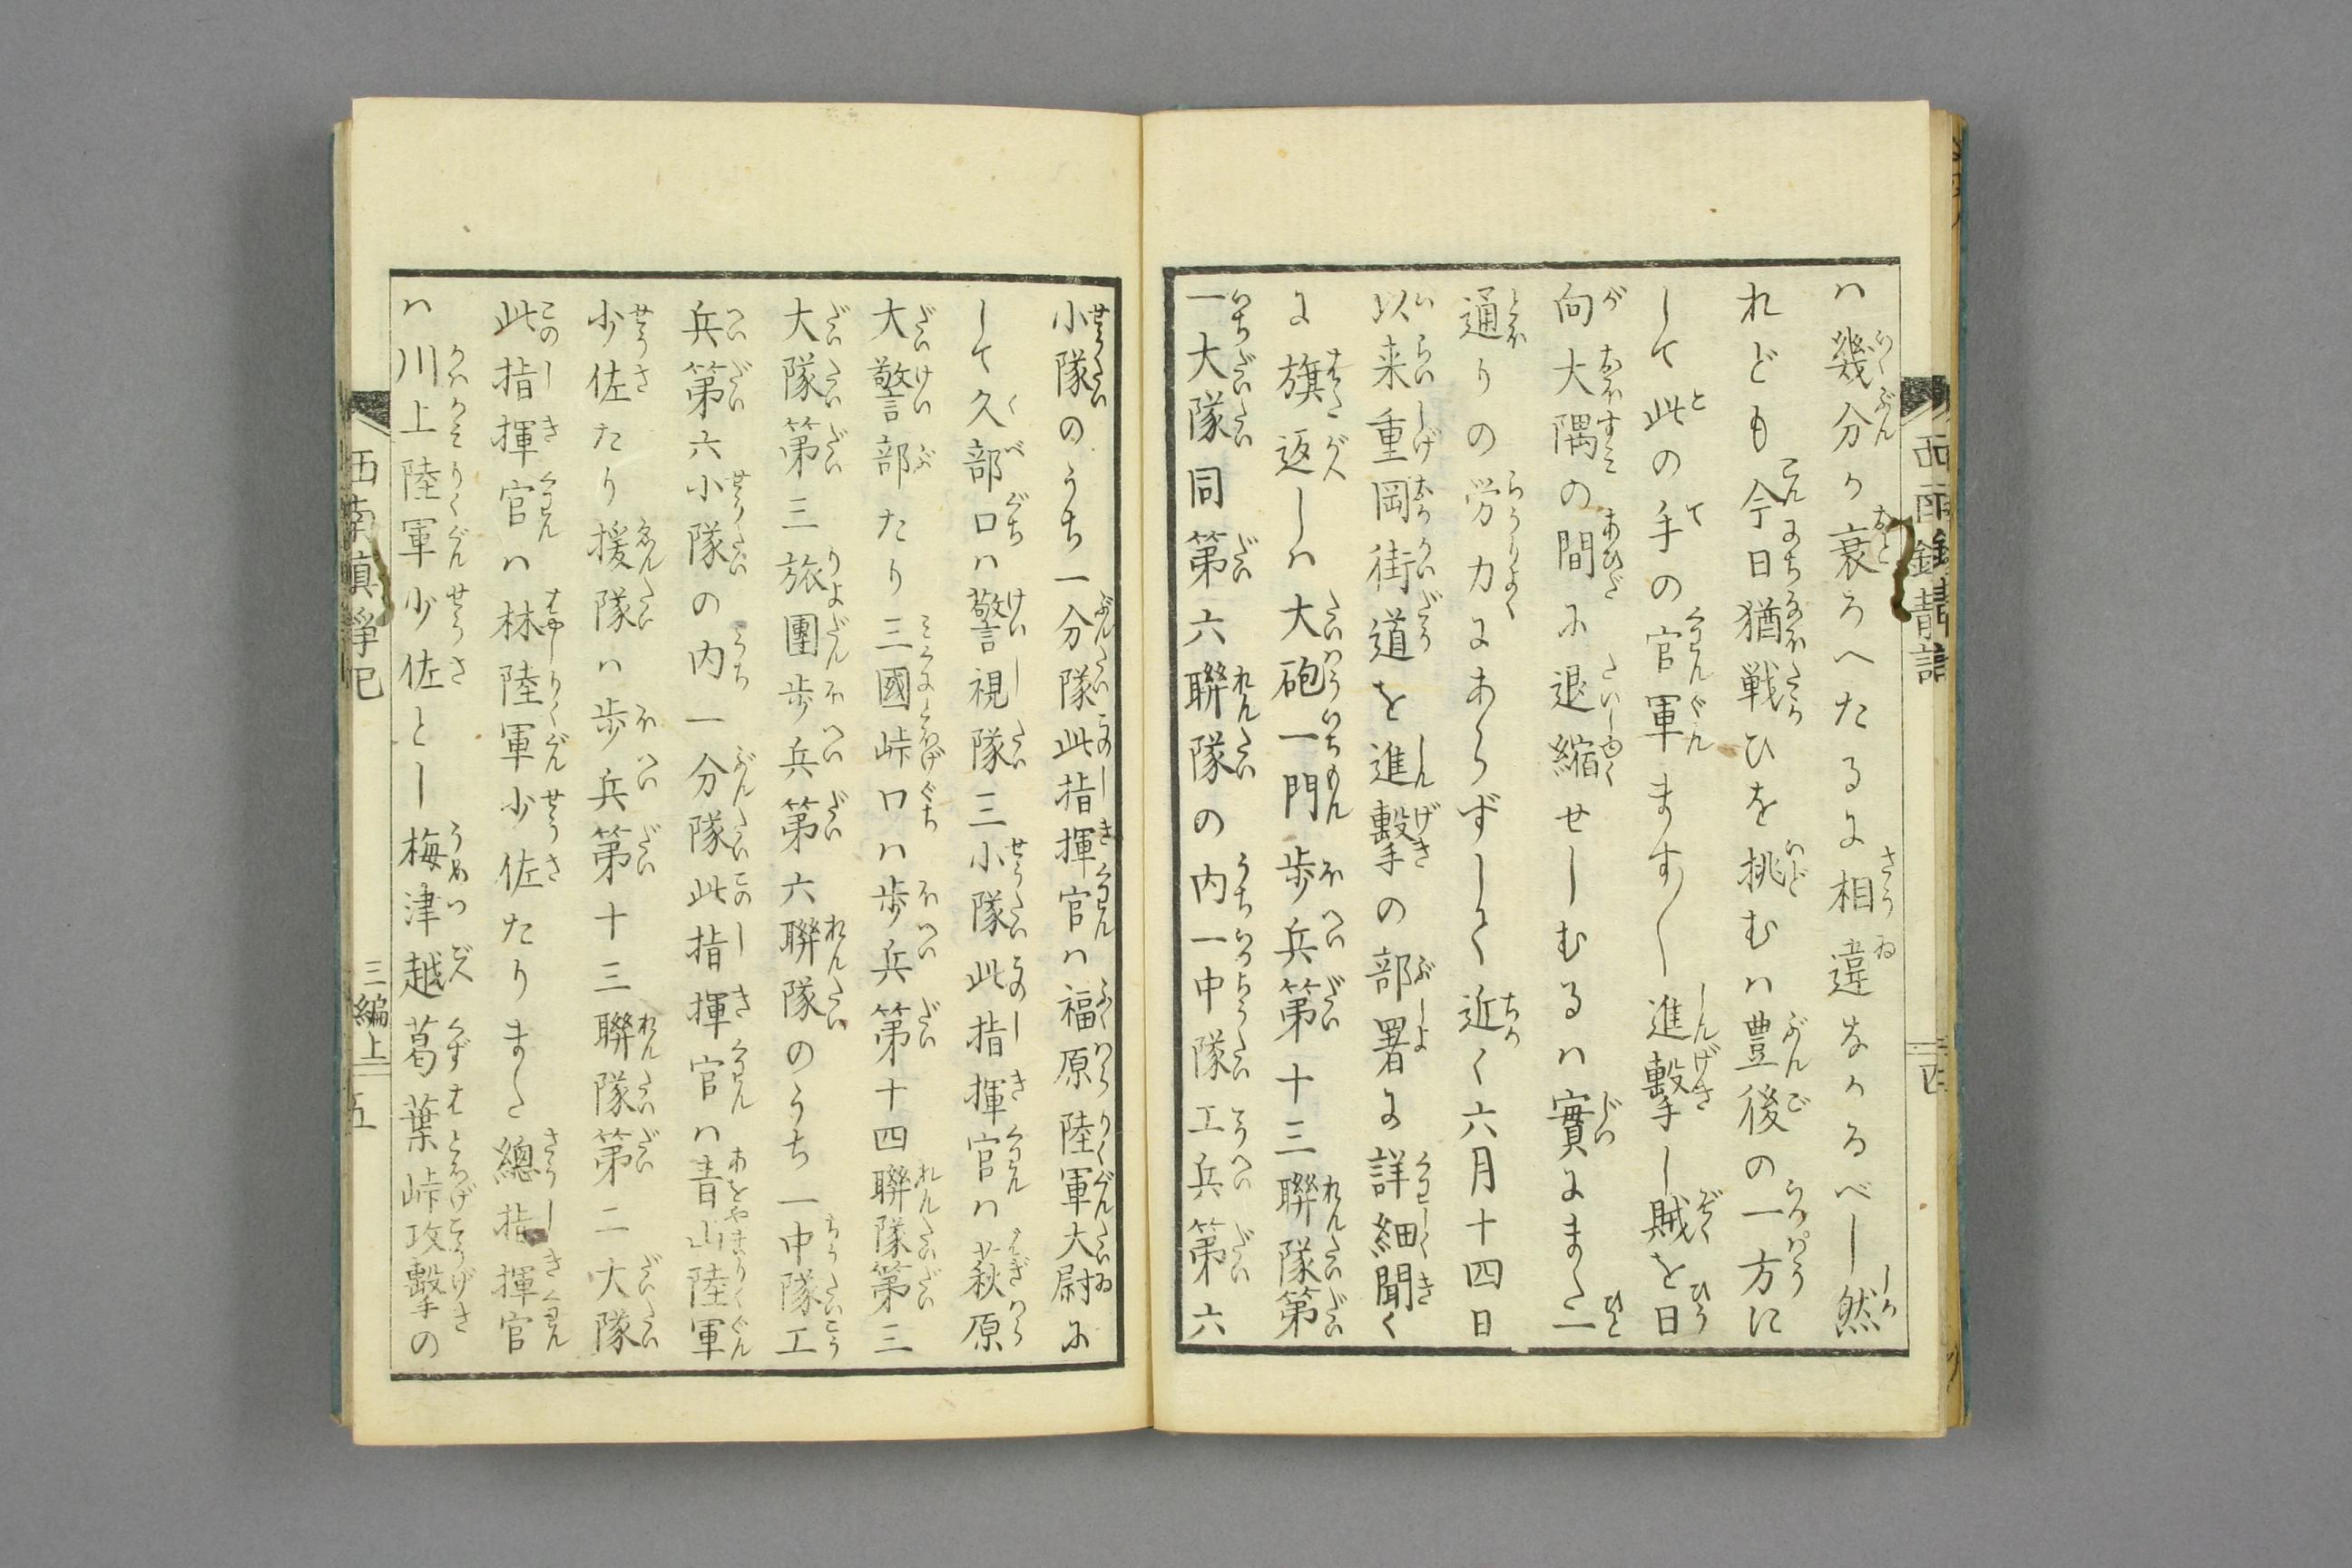 ハ幾分か衰ろへたるに相違なかるべし然
れども今日猶戦ひを挑むハ豊後の一方に
して此の手の官軍ます〱進撃し賊を日
向大隅の間に退縮せしむるハ實にまた一
通りの労力にあらずしく近く六月十四日
以来重岡街道を進撃の部署に詳細聞く
に旗返しハ大砲一門歩兵第十三聯隊第
一大隊同第六聯隊の内一中隊工兵第六
小隊のうち一分隊此指揮官ハ福原陸軍大尉に
して久部口ハ警視隊三小隊此指揮官ハ萩原
大警部たり三國峠口ハ歩兵第十四聯隊第三
大隊第三旅團歩兵第六聯隊のうち一中隊工
兵第六小隊の内一分隊此指揮官ハ青山陸軍
少佐たり援隊ハ歩兵第十三聯隊第二大隊
此指揮官ハ林陸軍少佐たりまた總指揮官
ハ川上陸軍少佐とし梅津越葛葉峠攻撃の
三編上 五